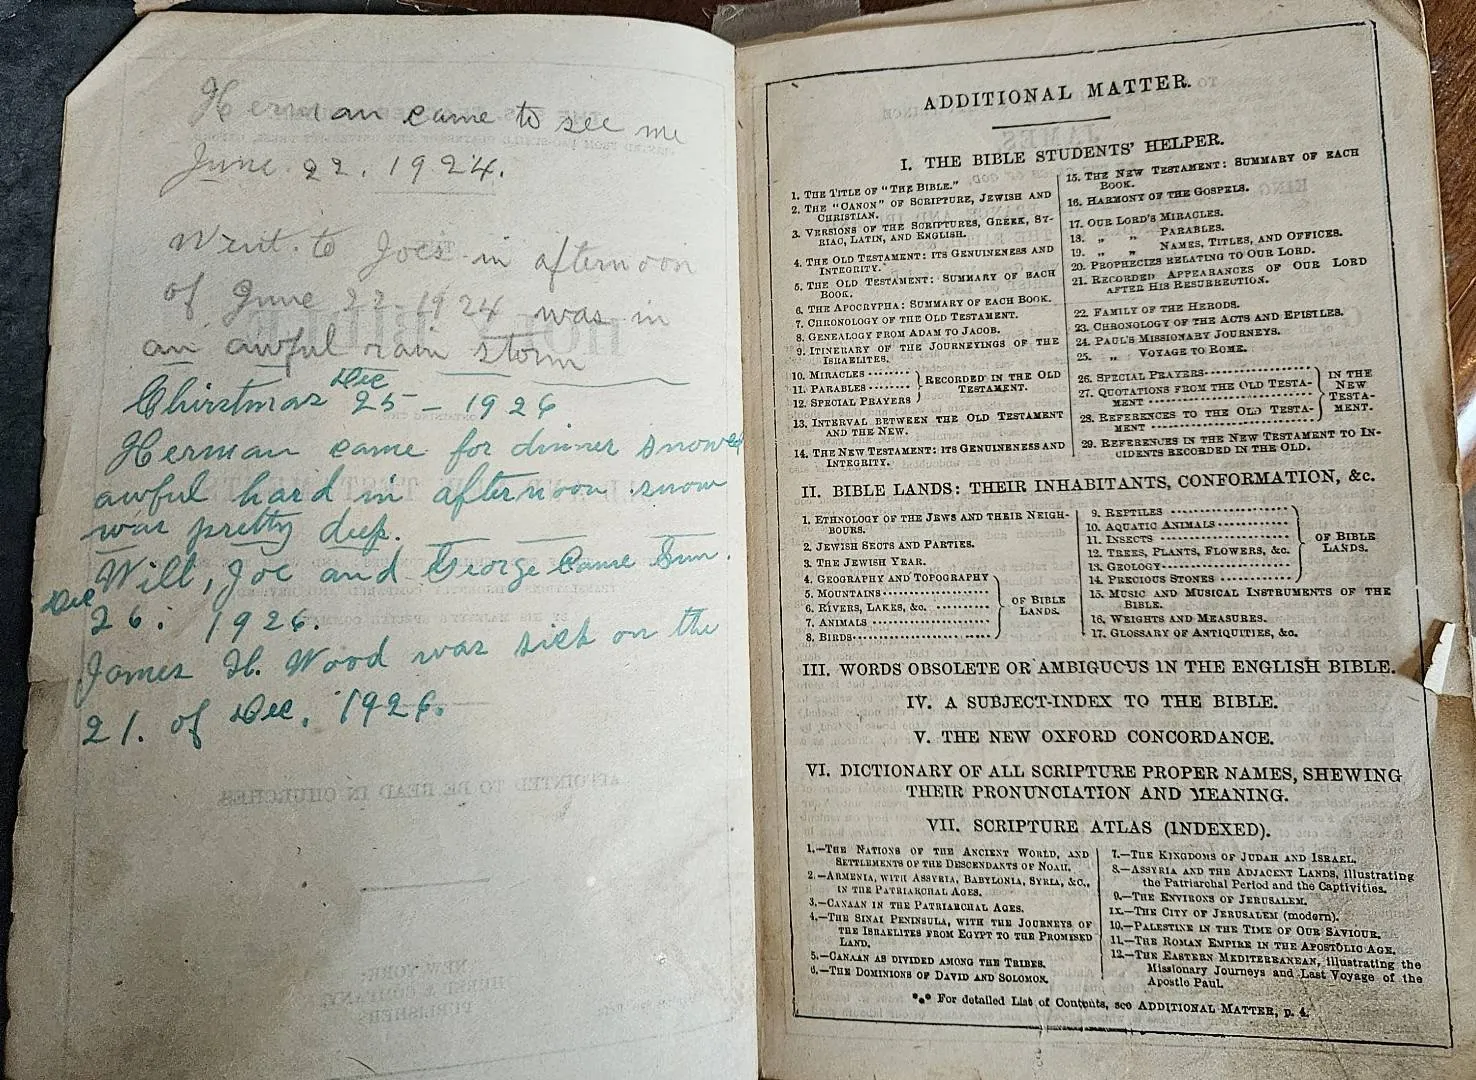 Herman came to see me
June. 22. 1924.
Went. to Joes. in afternoon
of June 22-1924 was in
an awful rain storm
Dec
Chirstmas 25 - 1926
Herman came for dinner snowed
awful hard in afternoon snow
was pretty deep.
Will, Joe and George Came Sun.
Dec
26. 1926.
James H. Wood was sick on the
21. of Dec. 1926.
ADDITIONAL MATTER.
I. THE BIBLE STUDENTS' HELPER.
1. THE TITLE OF "THE BIBLE."
2. THE "CANON" OF SCRIPTURE, JEWISH AND
CHRISTIAN.
3. VERSIONS OF THE SCRIPTURES, GREEK, SY-
RIAC, LATIN, AND ENGLISH.
4. THE OLD TESTAMENT: ITS GENUINENESS AND
INTEGRITY.
5. THE OLD TESTAMENT: SUMMARY OF EACH
BOOK.
6. THE APOCRYPHA: SUMMARY OF EACH BOOK.
7. CHRONOLOGY OF THE OLD TESTAMENT.
8. GENEALOGY FROM ADAM TO JACOB.
9. ITINERARY OF THE JOURNEYINGS OF THE
ISRAELITES.
10. MIRACLES
11. PARABLES
12. SPECIAL PRAYERS
RECORDED IN THE OLD
TESTAMENT.
13. INTERVAL BETWEEN THE OLD TESTAMENT
AND THE NEW.
14. THE NEW TESTAMENT: ITS GENUINENESS AND
INTEGRITY.
15. THE NEW TESTAMENT: SUMMARY OF EACH
BOOK.
16. HARMONY OF THE GOSPELS.
17. OUR LORD'S MIRACLES.
18. „ „ PARABLES.
19. „ „ NAMES, TITLES, AND OFFICES.
20. PROPHECIES RELATING TO OUR LORD.
21. RECORDED APPEARANCES OF OUR LORD
AFTER HIS RESURRECTION.
22. FAMILY OF THE HERODS.
23. CHRONOLOGY OF THE ACTS AND EPISTLES.
24. PAUL'S MISSIONARY JOURNEYS.
25. „ VOYAGE TO ROME.
26. SPECIAL PRAYERS
27. QUOTATIONS FROM THE OLD TESTA-
MENT
28. REFERENCES TO THE OLD TESTA-
MENT
IN THE
NEW
TESTA-
MENT.
29. REFERENCES IN THE NEW TESTAMENT TO IN-
CIDENTS RECORDED IN THE OLD.
II. BIBLE LANDS: THEIR INHABITANTS, CONFORMATION, &c.
1. ETHNOLOGY OF THE JEWS AND THEIR NEIGH-
BOURS.
2. JEWISH SECTS AND PARTIES.
3. THE JEWISH YEAR.
4. GEOGRAPHY AND TOPOGRAPHY
5. MOUNTAINS
6. RIVERS, LAKES, &c.
7. ANIMALS
8. BIRDS
OF BIBLE
LANDS.
9. REPTILES
10. AQUATIC ANIMALS
11. INSECTS
12. TREES, PLANTS, FLOWERS, &c.
13. GEOLOGY
14. PRECIOUS STONES
OF BIBLE
LANDS.
15. MUSIC AND MUSICAL INSTRUMENTS OF THE
BIBLE.
16. WEIGHTS AND MEASURES.
17. GLOSSARY OF ANTIQUITIES, &c.
III. WORDS OBSOLETE OR AMBIGUOUS IN THE ENGLISH BIBLE.
IV. A SUBJECT-INDEX TO THE BIBLE.
V. THE NEW OXFORD CONCORDANCE.
VI. DICTIONARY OF ALL SCRIPTURE PROPER NAMES, SHEWING
THEIR PRONUNCIATION AND MEANING.
VII. SCRIPTURE ATLAS (INDEXED).
1.—THE NATIONS OF THE ANCIENT WORLD, AND
SETTLEMENTS OF THE DESCENDANTS OF NOAH.
2.—ARMENIA, WITH ASSYRIA, BABYLONIA, SYRIA, &c.,
IN THE PATRIARCHAL AGES.
3.—CANAAN IN THE PATRIARCHAL AGES.
4.—THE SINAI PENINSULA, WITH THE JOURNEYS OF
THE ISRAELITES FROM EGYPT TO THE PROMISED
LAND.
5.—CANAAN AS DIVIDED AMONG THE TRIBES.
6.—THE DOMINIONS OF DAVID AND SOLOMON.
7.—THE KINGDOMS OF JUDAH AND ISRAEL.
8.—ASSYRIA AND THE ADJACENT LANDS, illustrating
the Patriarchal Period and the Captivities.
9.—THE ENVIRONS OF JERUSALEM.
IX.—THE CITY OF JERUSALEM (modern).
10.—PALESTINE IN THE TIME OF OUR SAVIOUR.
11.—THE ROMAN EMPIRE IN THE APOSTOLIC AGE.
12.—THE EASTERN MEDITERRANEAN, illustrating the
Missionary Journeys and Last Voyage of the
Apostle Paul.
*** For detailed List of Contents, see ADDITIONAL MATTER, p. 4.